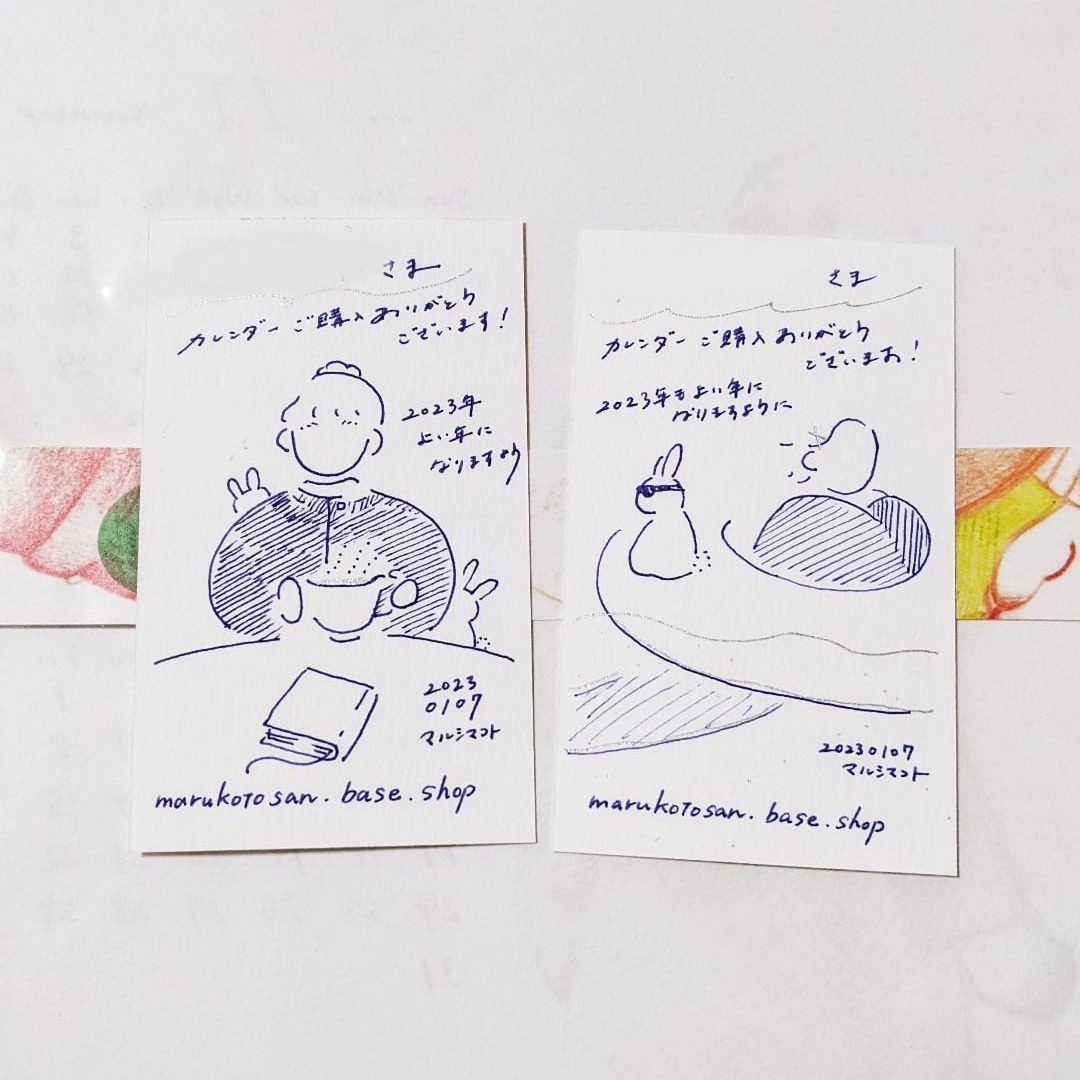 さま
カレンダー ご購入 ありがとう
ございます!
2023年
よい年に
なりますよう
2023
0107
マルシマコト
marukotosan.base.shop
さま
カレンダー ご購入 ありがとう
ございます!
2023年もよい年に
なりますように
20230107
マルシマコト
marukotosan.base.shop